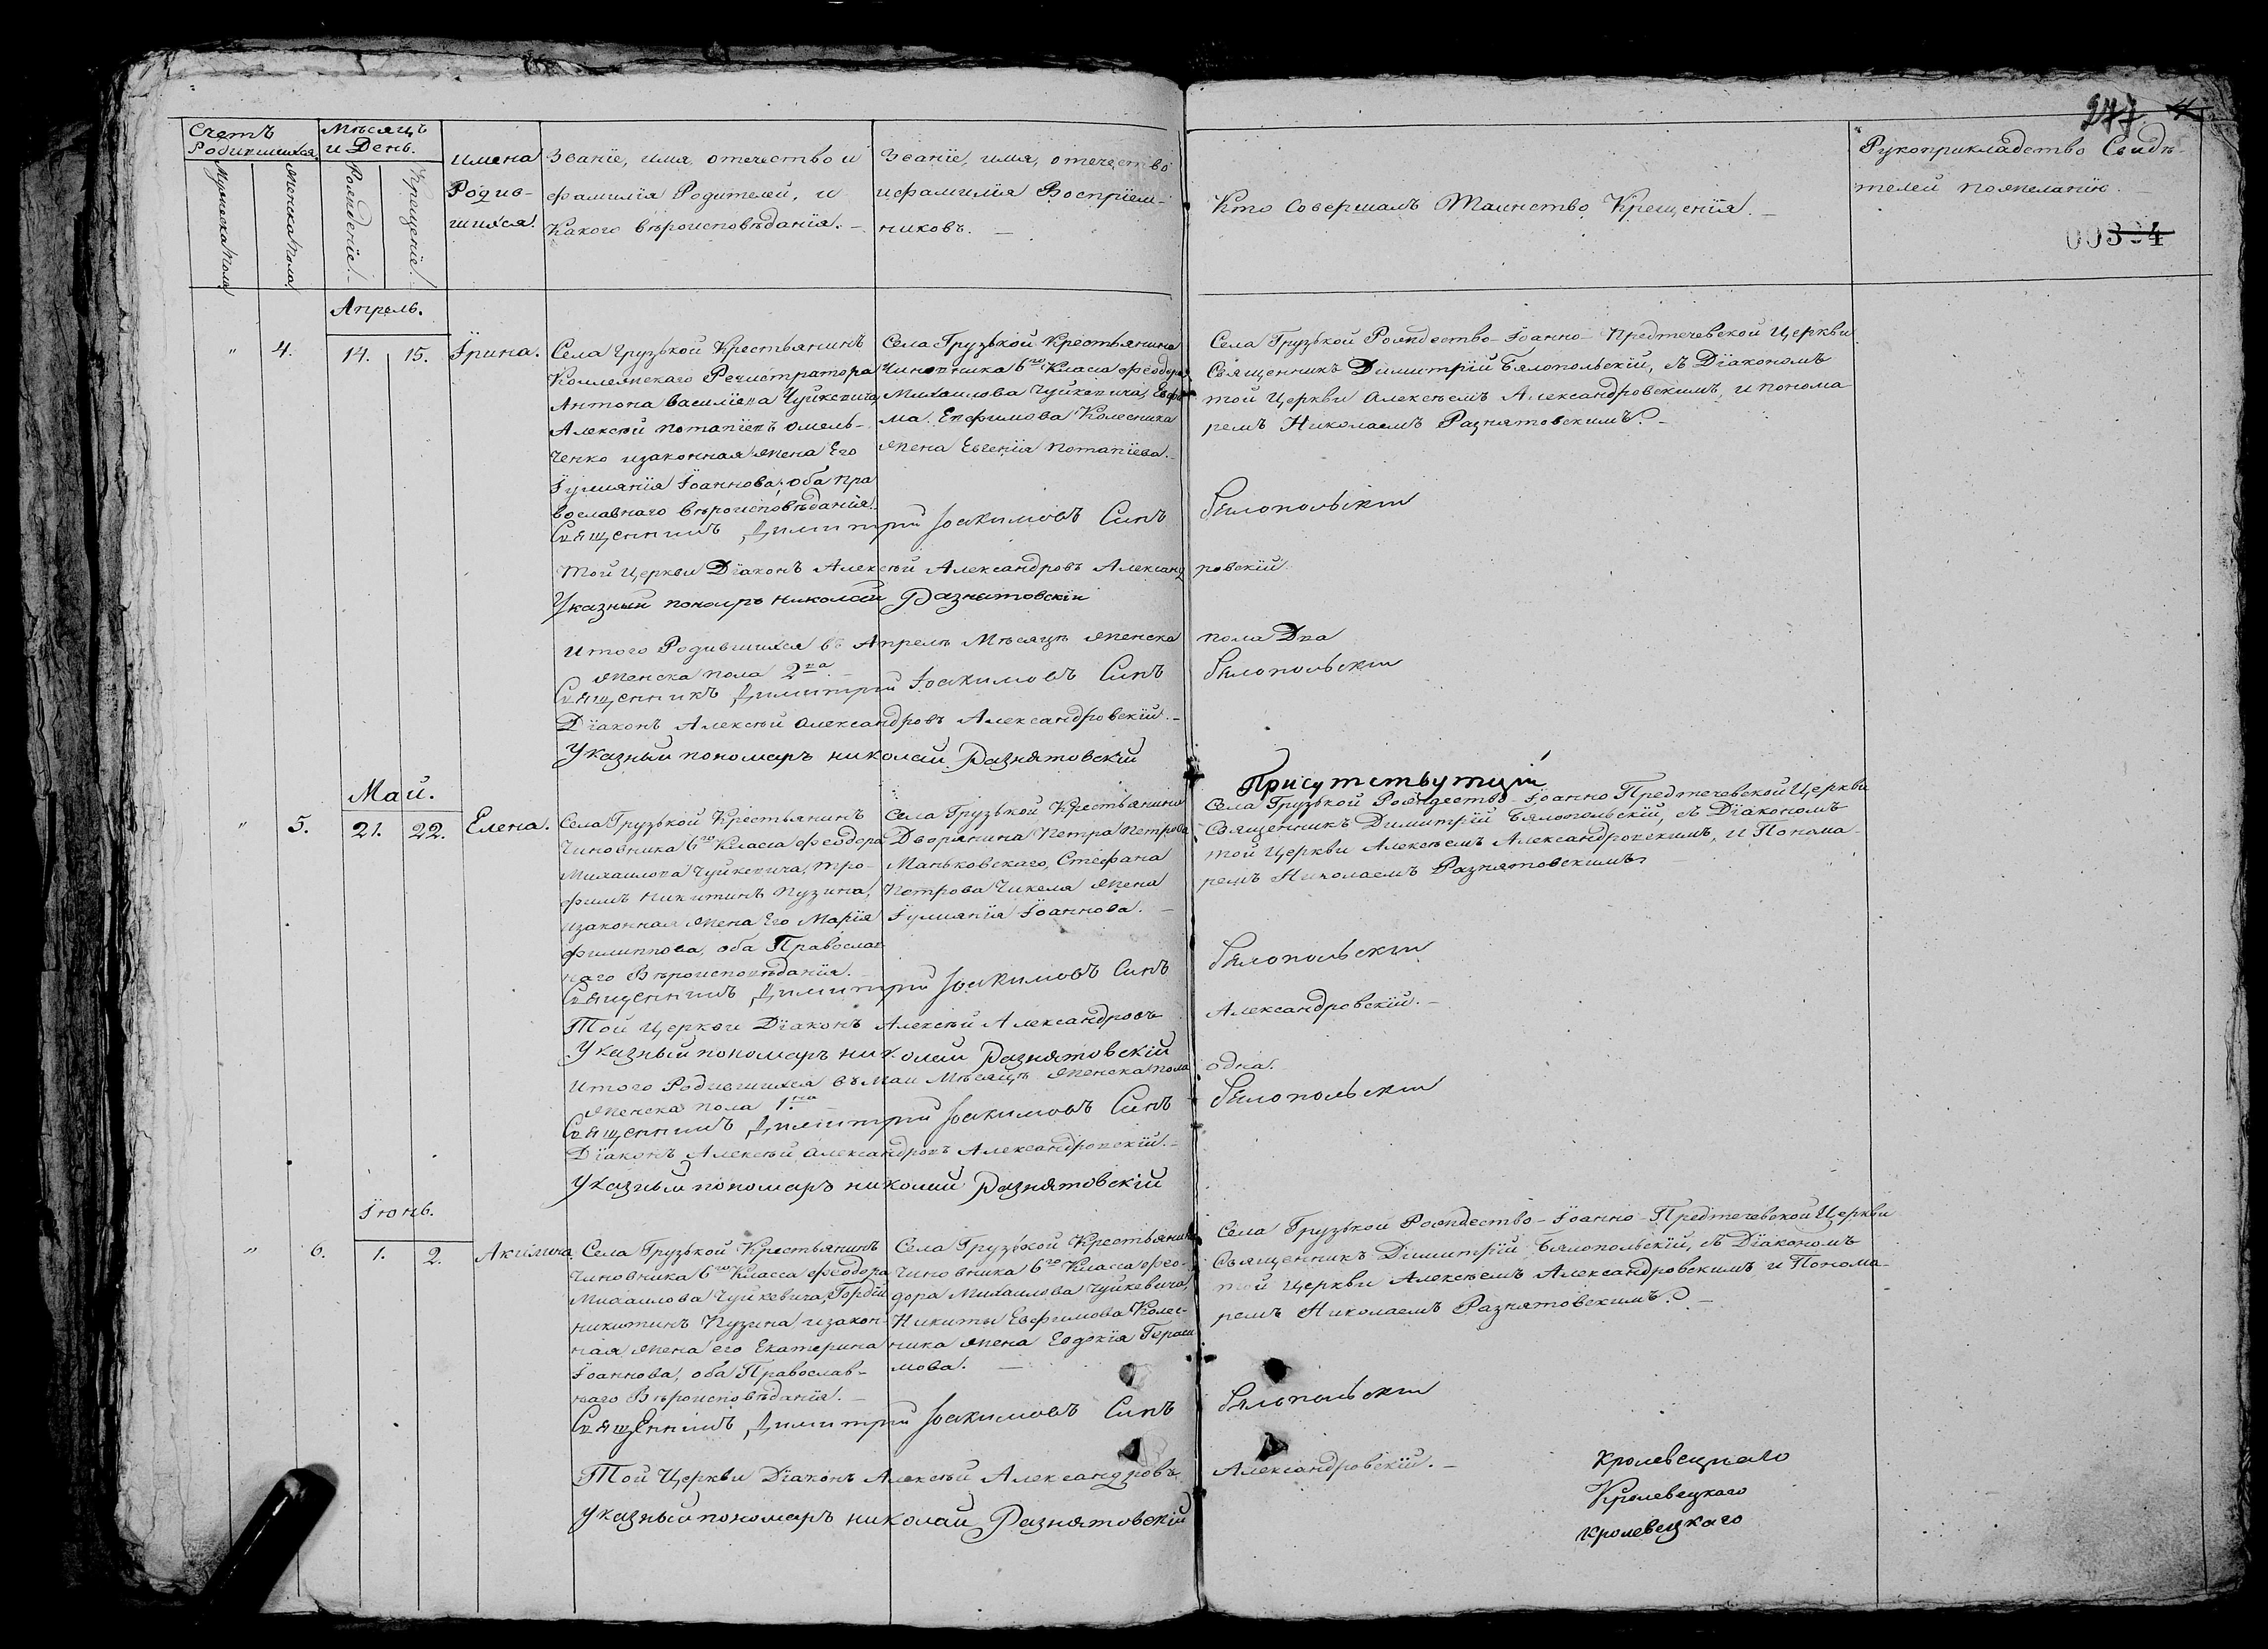 277
Счетъ Родившихся.
Мужеска пола
Женска пола
Мѣсяцъ и День.
Рожденіе.
Крещеніе.
имена
Родив-
шихся.
Званіе, имя, отечество и
фамилія Родителей, и
Какого вѣроисповѣданія. —
Званіе, имя, отечество
и фамилія Воспріем-
никовъ. —
Кто Совершалъ Таинство Крещенія. —
Рукоприкладство Свидѣ-
телей по желанію. —
00334
Апрель.
" 4. 14. 15. Їрина.
Села Грузької Крестьянинъ
Коллежскаго Регистратора
Антона Василіева Чуйкевича,
Алексѣй Потапіевъ Омель-
ченко и законная жена Его
Їулиянія Їоаннова, оба пра
вославнаго вѣроисповѣданія.
Села Грузької Крестьянина
Чиновника 6го Класса Феодора
Михаилова Чуйкевича, Евфи
ма Евфимова Колесника
жена Евгенія Потапіева. —
Села Грузької Рождество-Їоанно-Предтечевской Церкви
Священникъ Димитрій Бялопольскій, съ Діакономъ
той Церкви Алексѣемъ Александровскимъ, и понома
ремъ Николаемъ Разнятовскимъ. —
Священникъ Димитрій Іоакимовъ Синъ Бялопольскій
той Церкви Діаконъ Алексѣй Александровъ Александровскій
Указный пономаръ Николай Разнятовскій
Итого Родившихся въ Апрелѣ Мѣсяцѣ женска пола Два
женска пола 2ва. —
Священникъ Димитрій Іоакимовъ Синъ Бялопольскій
Діаконъ Алексѣй Александровъ Александровскій. —
Указный пономаръ Николай Разнятовскій
Май.
" 5. 21. 22. Елена.
Села Грузької Крестьянинъ
Чиновника 6го Класса Феодора
Михаилова Чуйкевича, Тро-
фимъ Никитинъ Пузина,
и законная жена Его Марія
Филиппова, оба Православ
наго Вѣроисповѣданія. —
Села Грузької Крестьянина
Дворянина Петра Петрова
Маньковскаго, Стефана
Петрова Чикеля жена
Їулиянія Їоаннова. —
Присутствующій
Села Грузької Рождество-Їоанно Предтечевской Церкви
Священникъ Димитрій Бялопольскій, съ Діакономъ
той Церкви Алексѣемъ Александровскимъ, и Понома-
ремъ Николаемъ Разнятовскимъ
Священникъ Димитрій Іоакимовъ Синъ Бялопольскій
Той Церкви Діаконъ Алексѣй Александровъ Александровскій. —
Указный пономаръ Николай Разнятовскій
Итого Родившихся въ Маи Мѣсяцѣ женска пола одна.
женска пола 1на
Священникъ Димитрій Іоакимовъ Синъ Бялопольскій
Діаконъ Алексѣй Александровъ Александровскій. —
Указный пономаръ Николай Разнятовскій
Їюнь.
" 6. 1. 2. Акилина
Села Грузької Крестьянинъ
Чиновника 6го Класса Феодора
Михаилова Чуйкевича, Гордій
Никитинъ Пузина и закон-
ная жена его Екатерина
Їоаннова, оба Православ-
наго Вѣроисповѣданія. —
Села Грузької Крестьянина
Чиновника 6го Класса Фео-
дора Михаилова Чуйкевича,
Никиты Евфимова Колес-
ника жена Евдокія Гераси
мова. —
Села Грузької Рождество-Їоанно-Предтечевской Церкви
Священникъ Димитрій Бялопольскій, съ Діакономъ
той Церкви Алексѣемъ Александровскимъ, и Понома-
ремъ Николаемъ Разнятовскимъ. —
Священникъ Димитрій Іоакимовъ Синъ Бялопольскій
Той Церкви Діаконъ Алексѣй Александровъ Александровскій. —
Указный пономаръ Николай Разнятовскій
Кролевецкаго
Кролевецкаго
Кролевецкаго